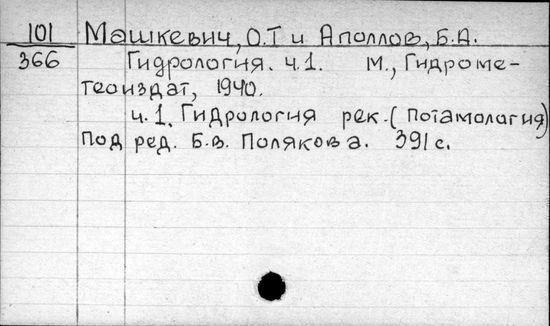 101 Машкевич, О.Т и Аполлов, Б.А.
366 Гидрология. ч.1. М., Гидроме-
теоиздат, 1940.
ч.1. Гидрология рек. (Потамология)
Под ред. Б.В. Полякова. 391 с.